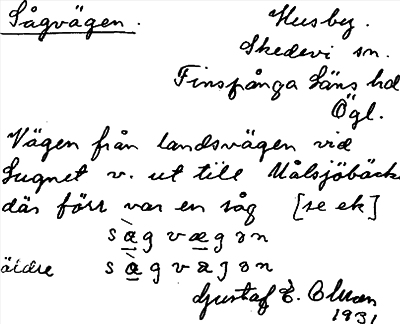 Sågvägen.
Husby.
Skedevi sn.
Finspånga Läns hd
Ögl.
Vägen från landsvägen vid
Lugnet v. ut till Målsjöbäck
där förr var en såg [se ek]
sàgvægən
äldre sàgvæɡən
Gustaf E.
1931